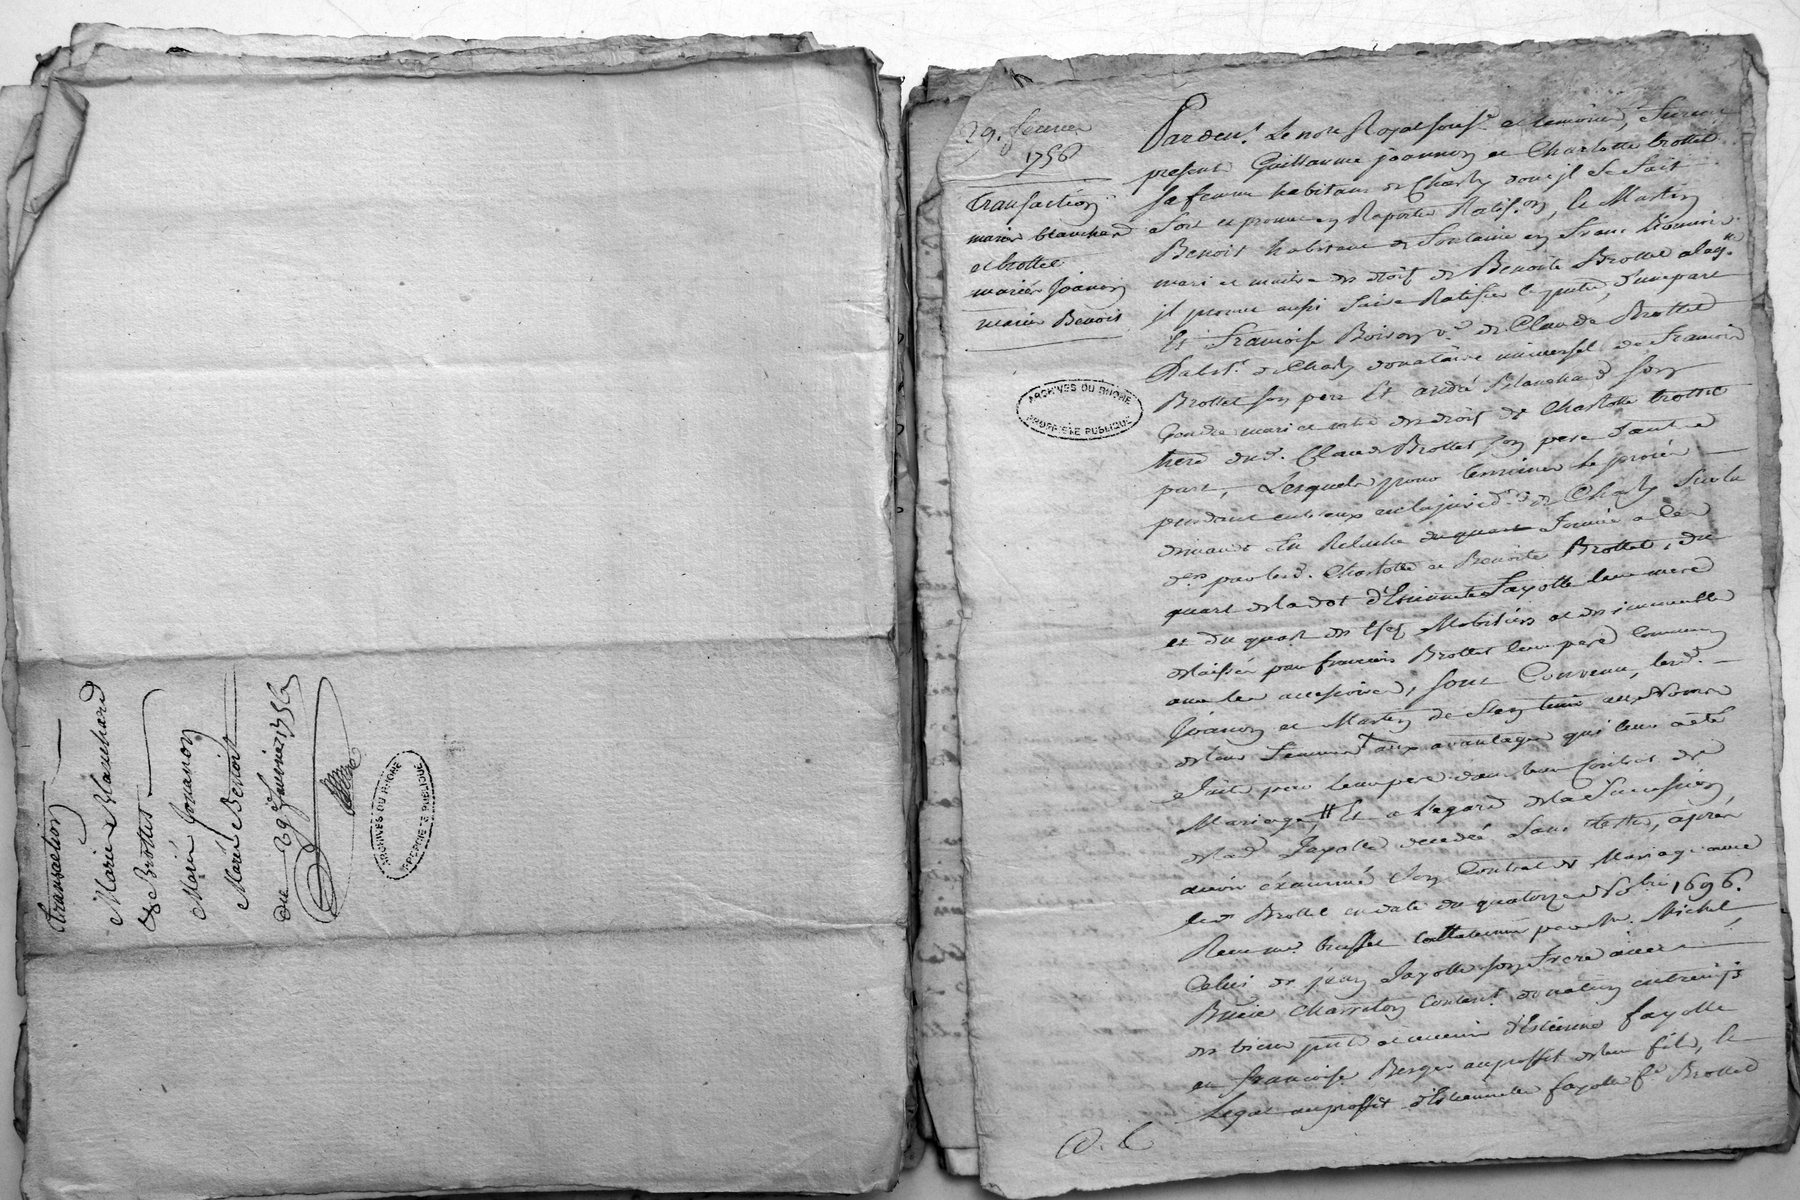 transaction
Mariés Blanchard
& Brottet
Mariés Jouanon
Mariés Benoit
du 29e Janvier 1756
ARCHIVES DU RHÔNE
PROPRIÉTÉ PUBLIQUE
29. Janvier
1756
transaction
mariés blanchard
et brottet
mariés Joanon
mariés Benois
ARCHIVES DU RHÔNE
PROPRIÉTÉ PUBLIQUE
Pardevt. Le nore Royal sousé. et temoins, furent
present Guillaume joannon et Charlotte brottet
sa femme habitans de Charly dont jl se fait
fort et promet en Raporter Ratifon, le Martin
Benoit habitant de fontaine en franc Lionnois
mari et maitre des droits de Benoite Brottet a laqle
jl promet aussi faire Ratifier les pntes, d'une part
Et francoise Boison ve. de Claude Brottet
habitte. de Charly donataire universel de francois
Brottet son pere Et andré Blanchard son
Gendre mari et mtre des droits de Charlotte brottet
here dud. Claude Brottet son pere d'autre
part, Lesquels pour terminer le procés
pendant entr'eux en la juridon de Charly sur la
demande En Relache du quart formée a ces
ders par lesd. Charlotte et Benoite Brottet, du
quart de la dot d'Etiennette fayolle leur mere
et du quart des effets Mobiliers et des immeubles
delaissés par francois Brottet leur pere commun
avec les accessoires, sont Convenu, lesd.
Joanon et Martin de s'en tenir aux noms
de leurs femmes aux avantages qui leur a été
faits par leur pere dans leurs Contrats de
Mariage, Et a l'egard de la succession
de lad. fayolle decedée sans tester, aprés
avoir éxaminé son Contrat de Mariage avec
led. Brottet en date du quatorze 1696.
Recu me. brossette par Me. Michel
Celui de jean fayolle son frere avec
Charreton content. donation entrevifs
des biens pnts et avenir d'Estienne fayolle
et francoise Berger au proffit de leur fils, le
Legat au proffit d'Estiennette fayolle fe Brottet